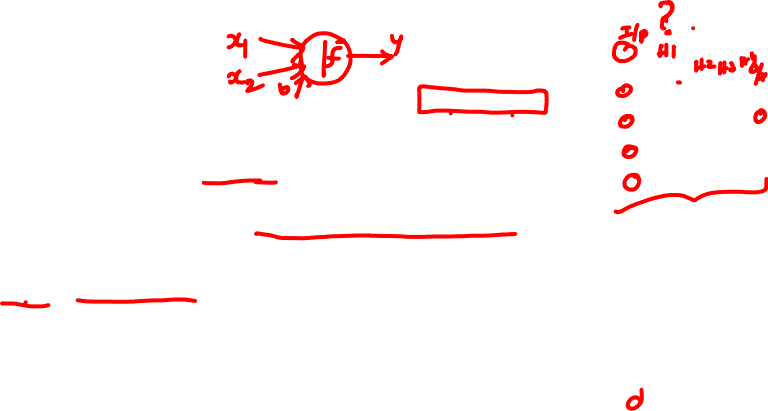 x1
x2
b
f
y
I/p
?
H1
H2 H3
o/p
d